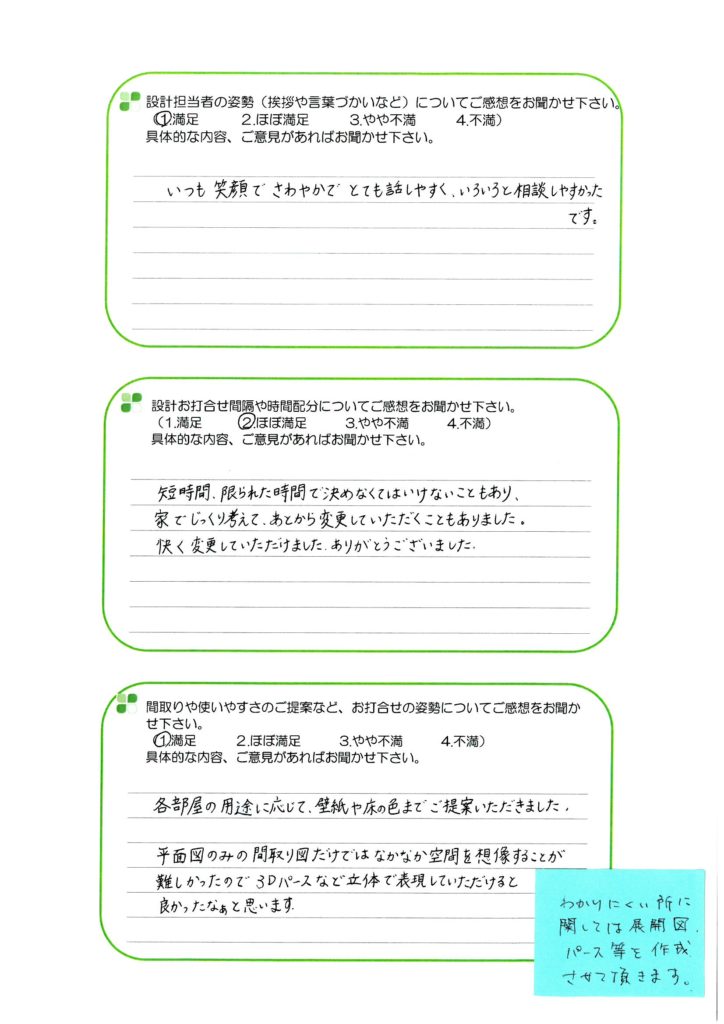 設計担当者の姿勢（挨拶や言葉づかいなど）についてご感想をお聞かせ下さい。
（1.満足 2.ほぼ満足 3.やや不満 4.不満）
具体的な内容、ご意見があればお聞かせ下さい。
いつも笑顔でさわやかでとても話しやすく、いろいろと相談しやすかった
です。
設計お打合せ間隔や時間配分についてご感想をお聞かせ下さい。
（1.満足 2.ほぼ満足 3.やや不満 4.不満）
具体的な内容、ご意見があればお聞かせ下さい。
短時間、限られた時間で決めなくてはいけないこともあり、
家でじっくり考えて、あとから変更していただくこともありました。
快く変更していただけました。ありがとうございました。
間取りや使いやすさのご提案など、お打合せの姿勢についてご感想をお聞か
せ下さい。
（1.満足 2.ほぼ満足 3.やや不満 4.不満）
具体的な内容、ご意見があればお聞かせ下さい。
各部屋の用途に応じて、壁紙や床の色までご提案いただきました。
平面図のみの間取り図だけではなかなか空間を想像することが
難しかったので3Dパースなど立体で表現していただけると
良かったなぁと思います。
わかりにくい所に
関しては展開図、
パース等を作成
させて頂きます。